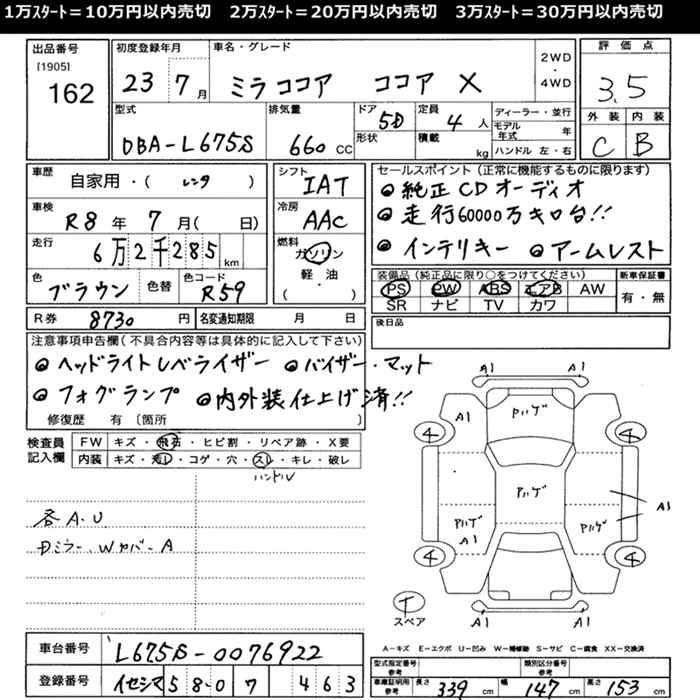 1万ｽﾀｰﾄ＝10万円以内売切　2万ｽﾀｰﾄ＝20万円以内売切　3万ｽﾀｰﾄ＝30万円以内売切
出品番号 [1905] 162
初度登録年月 23 7月
車名・グレード ミラココア ココア X
2WD・4WD
評価点 3.5
外装 C 内装 B
型式 DBA-L675S
排気量 660 CC
ドア 5D
形状
定員 4人
積載 kg
ディーラー・並行
モデル年式 年
ハンドル 左・右
車歴 自家用・(レンタ)
車検 R8年 7月( 日)
走行 6万2千285 km
色 ブラウン 色替 色コード R59
シフト IAT
冷房 AAC
燃料 ガソリン 軽・油 ( ・ )
セールスポイント（正常に機能するものに限ります）
●純正CDオーディオ
●走行60000万キロ台!!
●インテリキー ●アームレスト
装備品（純正品に限り○をつけてください）
PS PW ABS エアB AW
SR ナビ TV カワ
新車保証書 有・無
R券 8730 円 名変通知期限 月 日
後日品
注意事項申告欄（不具合内容等は具体的に記入して下さい）
●ヘッドライトレベライザー ●バイザー・マット
●フォグランプ ●内外装仕上げ済!!
修復歴 有〔箇所 〕
検査員記入欄
FW キズ・飛石・ヒビ割・リペア跡・X要
内装 キズ・汚レ・コゲ・穴・スレ・キレ・破レ
ハンドル
各A.U
Dミラー、Wカバー A
A1 A1
A1 Aハゲ A1
4 4
Aハゲ
Aハゲ A1 Aハゲ A1
4 4
T スペア
A1 A1
A－キズ E－エクボ U－凹み W－補修跡 S－サビ C－腐食 XX－交換済
車台番号 L675S-0076922
登録番号 イセシマ 580 ワ 463
型式指定番号 参考 類別区分番号 参考
車庫証明用 参考 長さ 339 cm 幅 147 cm 高さ 153 cm